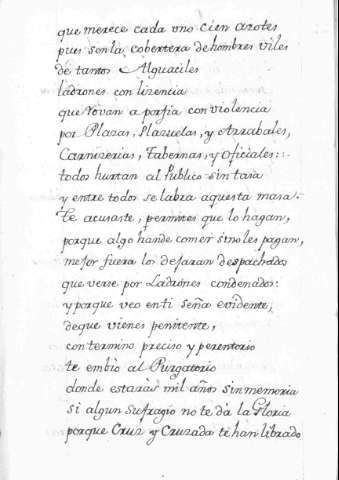 que merece cada uno cien azotes
pues son la cobertera de hombres viles
de tantos Alguaciles
ladrones con lizencia
que rovan a porfia con violencia
por Plazas, Plazuelas, y Arrabales,
Carnizerias, Tabernas, y Oficiales::
todo hurtan al Publico sin tasa
y entre todos se labra aquesta masa.
Te acusaste, permites que lo hagan,
porque algo hande comer sinoles pagan,
mejor fuera los dejaran despachados
que verse por Ladrones condenados:
y porque veo enti seña evidente,
deque vienes penitente,
con termino preciso y perentorio
te embio al Purgatorio
donde estaràs mil años sin memoria
si algun sufragio no te dà la Gloria
porque Cruz y Cruzada te han librado